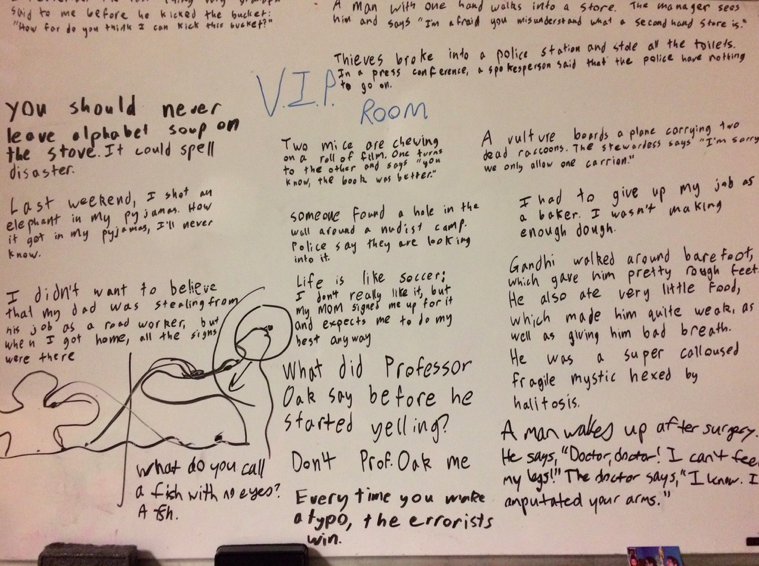 said to me before he kicked the bucket:
"How far do you think I can kick this bucket?"
A man with one hand walks into a store. The manager sees
him and says "I'm afraid you misunderstand what a second hand store is."
Thieves broke into a police station and stole all the toilets.
In a press conference, a spokesperson said that the police have nothing
to go on.
V.I.P.
Room
You should never
leave alphabet soup on
the stove. It could spell
disaster.
Last weekend, I shot an
elephant in my pyjamas. How
it got in my pyjamas, I'll never
know.
I didn't want to believe
that my dad was stealing from
his job as a road worker, but
when I got home, all the signs
were there
What do you call
a fish with no eyes?
A fsh.
Two mice are chewing
on a roll of film. One turns
to the other and says "you
know, the book was better."
someone found a hole in the
wall around a nudist camp.
Police say they are looking
into it.
Life is like soccer;
I don't really like it, but
my MOM signed me up for it
and expects me to do my
best anyway
What did Professor
Oak say before he
started yelling?
Don't Prof. Oak me
Every time you make
a typo, the errorists
win.
A vulture boards a plane carrying two
dead raccoons. The stewardess says "I'm sorry
we only allow one carrion."
I had to give up my job as
a baker. I wasn't making
enough dough.
Gandhi walked around barefoot,
which gave him pretty rough feet.
He also ate very little food,
which made him quite weak, as
well as giving him bad breath.
He was a super calloused
fragile mystic hexed by
halitosis.
A man wakes up after surgery.
He says, "Doctor, doctor! I can't feel
my legs!" The doctor says, "I know. I
amputated your arms."